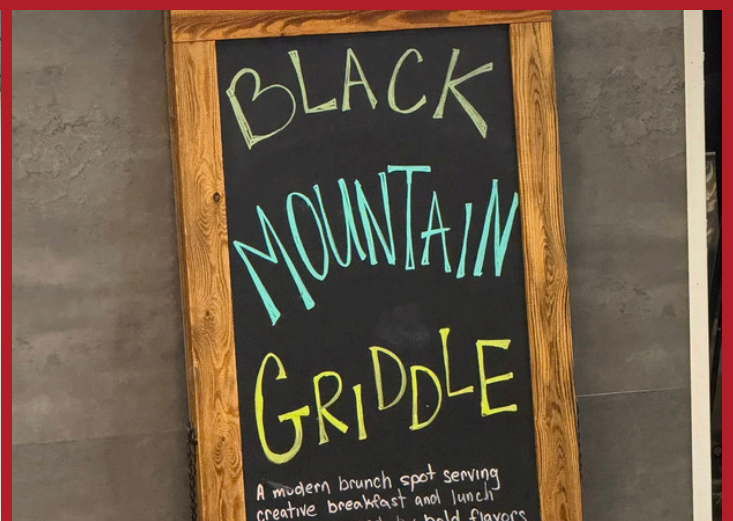 BLACK
MOUNTAIN
GRIDDLE
A modern brunch spot serving
creative breakfast and lunch
by bold flavors